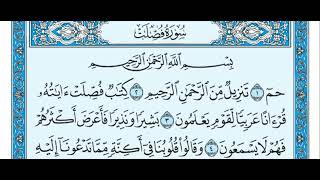 سُورَةُ فُصِّلَتْ
بِسْمِ اللَّهِ الرَّحْمَٰنِ الرَّحِيمِ
حمٓ ١ تَنزِيلٌ مِّنَ الرَّحْمَٰنِ الرَّحِيمِ ٢ كِتَٰبٌ فُصِّلَتْ ءَايَٰتُهُۥ
قُرْءَانًا عَرَبِيًّا لِّقَوْمٍ يَعْلَمُونَ ٣ بَشِيرًا وَنَذِيرًا فَأَعْرَضَ أَكْثَرُهُمْ
فَهُمْ لَا يَسْمَعُونَ ٤ وَقَالُوا۟ قُلُوبُنَا فِىٓ أَكِنَّةٍ مِّمَّا تَدْعُونَآ إِلَيْهِ